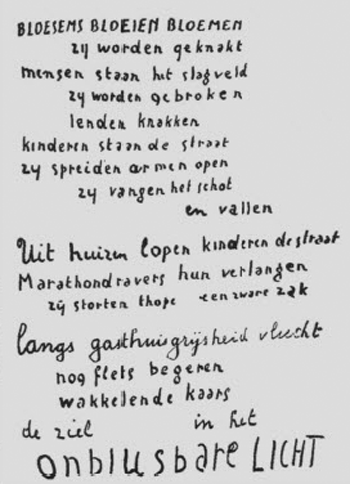 BLOESEMS BLOEIEN BLOEMEN
zy worden geknakt
mensen staan het slagveld
zy worden gebroken
lenden knakken
kinderen staan de straat
zy spreiden armen open
zy vangen het schot
en vallen
Uit huizen lopen kinderen de straat
Marathondravers hun verlangen
zy storten thope een zware zak
langs gasthuisgrijsheid vlecht
nog flets begeren
wakkelende kaars
de ziel in het
onblusbare LICHT